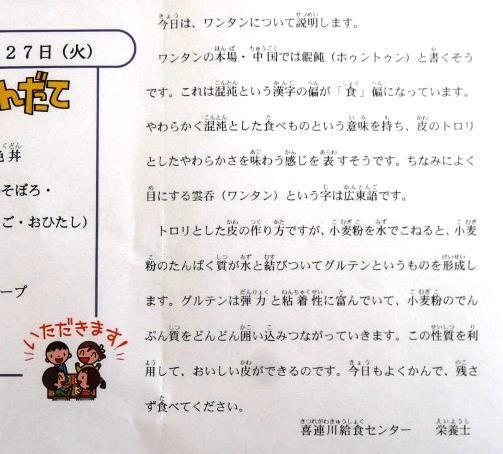 27日(火)
んだて
丼
そぼろ・
ご・おひたし)
ープ
いただきます!
今日は、ワンタンについて説明します。
ワンタンの本場・中国では餛飩(ホゥントゥン)と書くそう
です。これは混沌という漢字の偏が「食」偏になっています。
やわらかく混沌とした食べものという意味を持ち、皮のトロリ
としたやわらかさを味わう感じを表すそうです。ちなみによく
目にする雲呑(ワンタン)という字は広東語です。
トロリとした皮の作り方ですが、小麦粉を水でこねると、小麦
粉のたんぱく質が水と結びついてグルテンというものを形成し
ます。グルテンは弾力と粘着性に富んでいて、小麦粉のでん
ぷん質をどんどん囲い込みつながっていきます。この性質を利
用して、おいしい皮ができるのです。今日もよくかんで、残さ
ず食べてください。
喜連川給食センター 栄養士